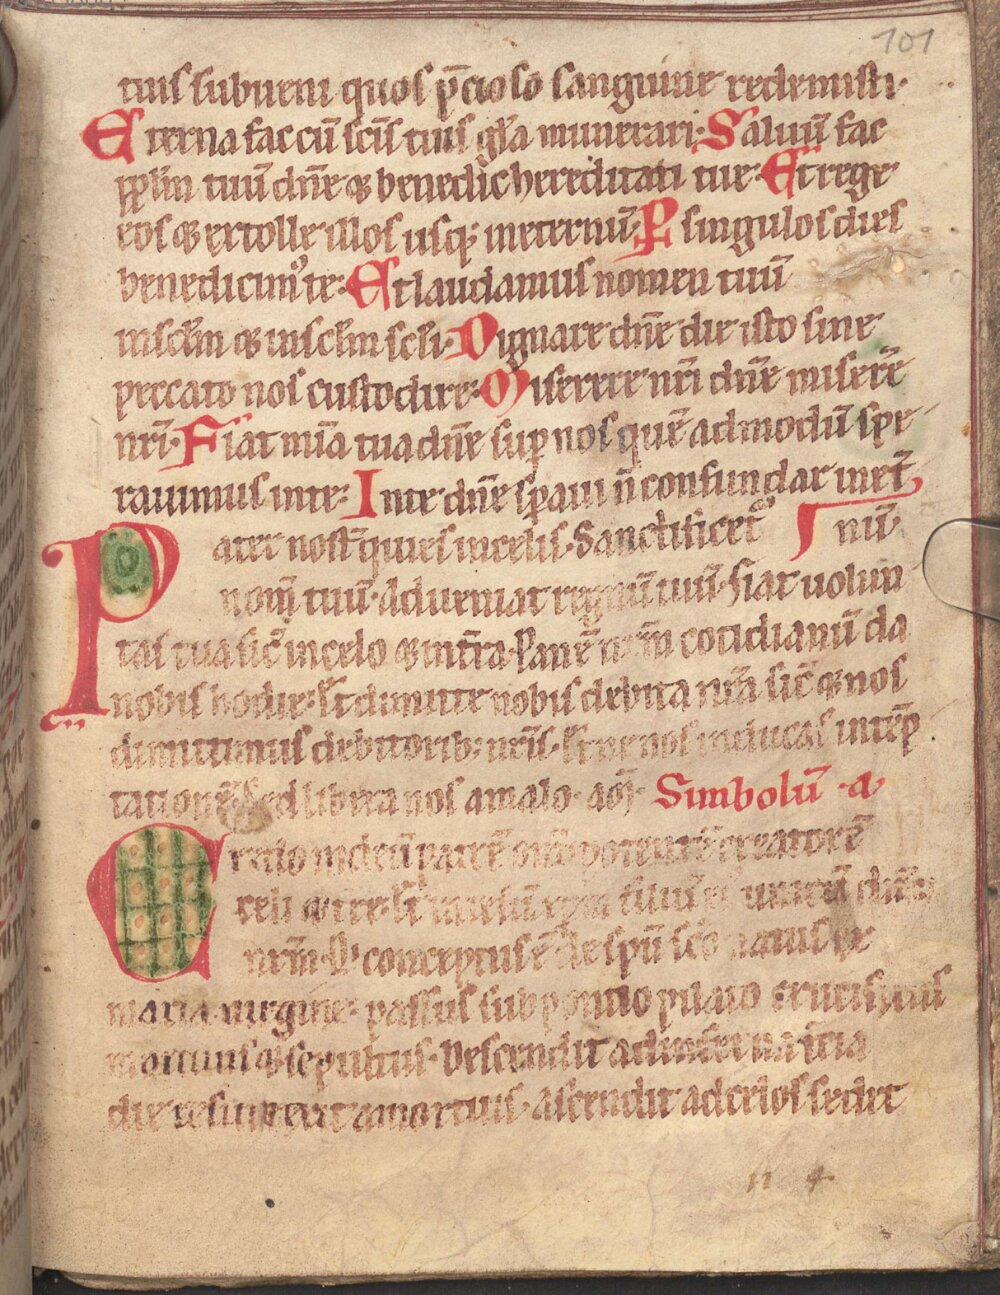 101
tuis subueni quos p̄cioso sanguine redemisti·
Eterna fac cū scīs tuis gl̄a munerari· Saluū fac
pplm̄ tuū dn̄e ⁊ benedic hereditati tue· Et rege
eos ⁊ extolle illos usq; ineternū· P singulos dies
benedicimꝰ te· Et laudamus nomen tuū
insclm̄ ⁊ insclm̄ scli· Dignare dn̄e die isto sine
peccato nos custodire· Miserere nr̄i dn̄e miserē
nr̄i· Fiat mīa tua dn̄e sup nos quē ad modū spe
rauimus inte· In te dn̄e speraui n̄ confundar inet̄
Pater nost̄ qui es incelis· Sanctificet̄ nū·
nom̄ tuū· adueniat regnū tuū· fiat uolun
tas tua sic̄ incelo ⁊ int̄ra· Panē nr̄m cotidianū da
nobis hodie· Et dimitte nobis debita nr̄a sic̄ ⁊ nos
dimittimus debitorib; nr̄is· Et ne nos inducas intēp
tationē Sed libera nos amalo· am̄· Simbolū · a·
Credo indeū patrē om̄ipotentē creatorē
celi ⁊ tre· Et iniesū xpm filiū ei unicū dn̄m
nr̄m· Q conceptus ē de spū scō natus ex
maria uirgine· passus sub pontio pilato crucifixus
mortuus ⁊ sepultus· Descendit adinferna tcia
die resurrexit amortuis· ascendit adcelos sedet